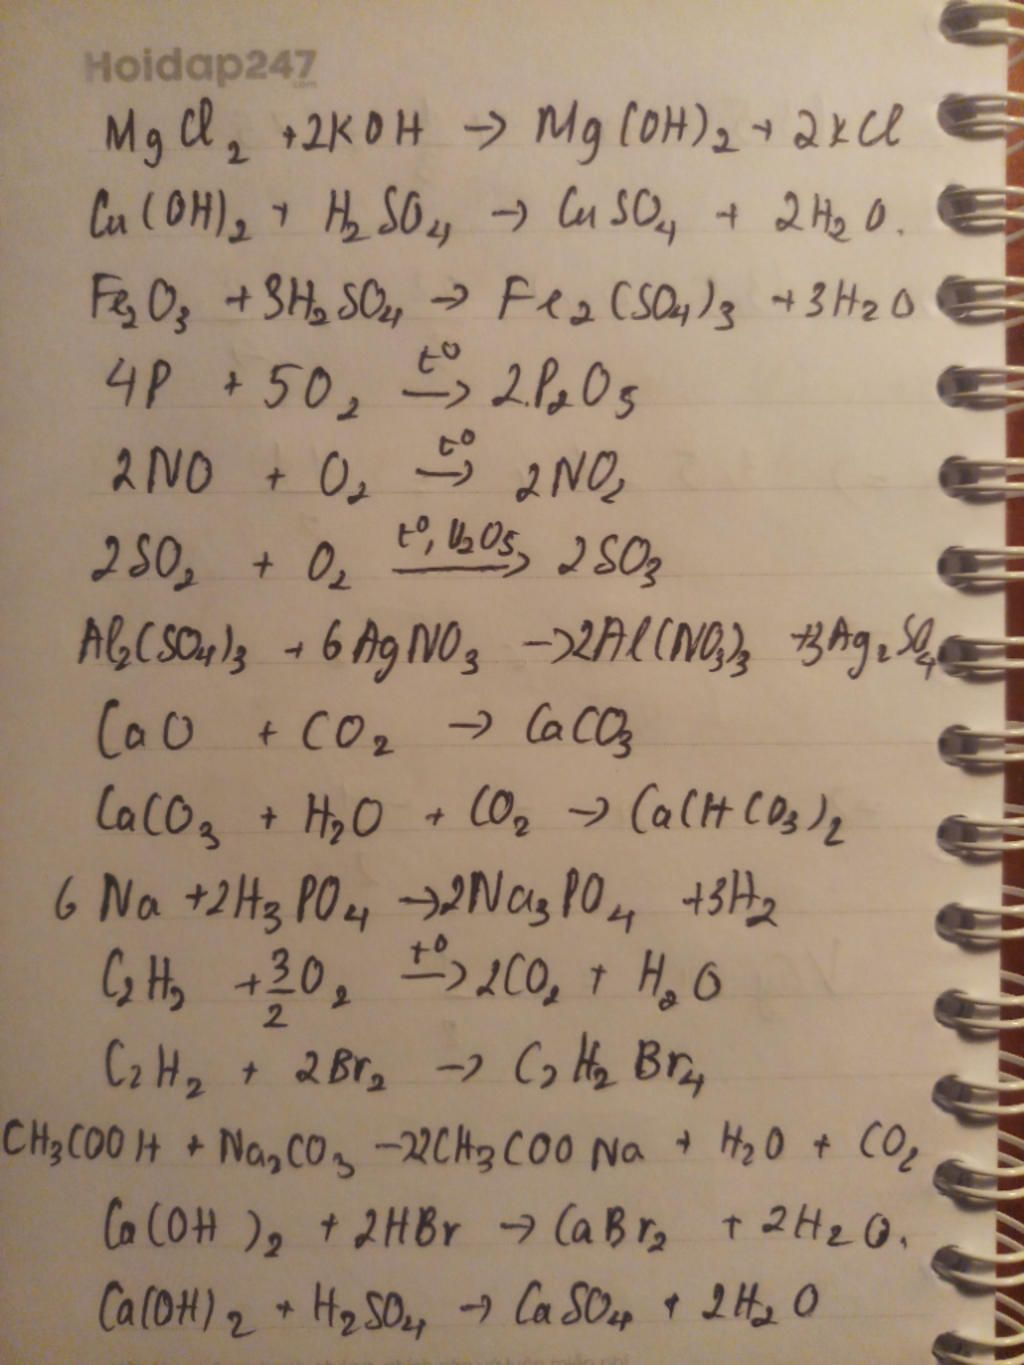 Hoidap247
.com
MgCl₂ + 2KOH → Mg(OH)₂ + 2KCl
Cu(OH)₂ + H₂SO₄ → CuSO₄ + 2H₂O.
Fe₂O₃ + 3H₂SO₄ → Fe₂(SO₄)₃ + 3H₂O
t⁰
4P + 5O₂ → 2P₂O₅
t⁰
2NO + O₂ → 2NO₂
t⁰, V₂O₅
2SO₂ + O₂ → 2SO₃
Al₂(SO₄)₃ + 6AgNO₃ → 2Al(NO₃)₃ + 3Ag₂SO₄
CaO + CO₂ → CaCO₃
CaCO₃ + H₂O + CO₂ → Ca(HCO₃)₂
6Na + 2H₃PO₄ → 2Na₃PO₄ + 3H₂
t⁰
C₂H₂ + 3/2 O₂ → 2CO₂ + H₂O
C₂H₂ + 2Br₂ → C₂H₂Br₄
CH₃COOH + Na₂CO₃ → 2CH₃COONa + H₂O + CO₂
Ca(OH)₂ + 2HBr → CaBr₂ + 2H₂O.
Ca(OH)₂ + H₂SO₄ → CaSO₄ + 2H₂O